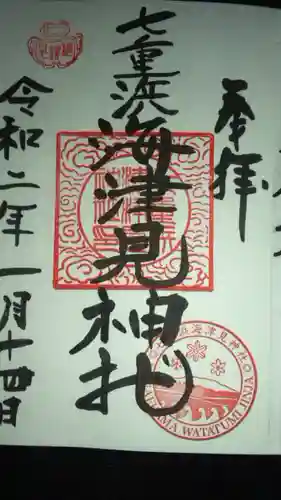 奉拝
七重浜
海津見神社
令和二年一月十四日
浜海津見神社
HAMA WATATUMI JINJA